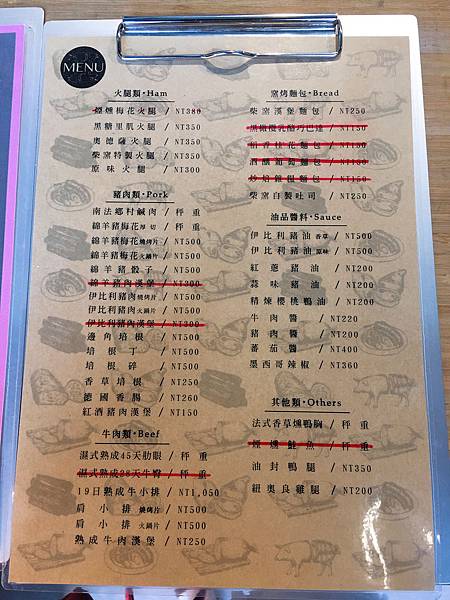 MENU
火腿類·Ham
煙燻梅花火腿 / NT380
黑糖里肌火腿 / NT350
奧德薩火腿 / NT350
柴窯特製火腿 / NT350
原味火腿 / NT300
豬肉類·Pork
南法鄉村鹹肉 / 秤重
綿羊豬梅花厚切 / 秤重
綿羊豬梅花燒烤片 / NT500
綿羊豬梅花火鍋片 / NT500
綿羊豬骰子 / NT500
綿羊豬肉漢堡 / NT300
伊比利豬肉燒烤片 / NT500
伊比利豬肉火鍋片 / NT500
伊比利豬肉漢堡 / NT300
邊角培根 / NT500
培根丁 / NT500
培根碎 / NT500
香草培根 / NT250
德國香腸 / NT260
紅酒豬肉漢堡 / NT150
牛肉類·Beef
濕式熟成45天肋眼 / 秤重
濕式熟成28天牛臀 / 秤重
19日熟成牛小排 / NT1,050
肩小排燒烤片 / NT500
肩小排火鍋片 / NT500
熟成牛肉漢堡 / NT250
窯烤麵包·Bread
柴窯漢堡麵包 / NT250
/ NT150
/ NT150
/ NT150
/ NT150
柴窯自製吐司 / NT250
油品醬料·Sauce
伊比利豬油香草 / NT500
伊比利豬油原味 / NT500
紅蔥豬油 / NT200
蒜味豬油 / NT200
精煉櫻桃鴨油 / NT200
牛肉醬 / NT220
豬肉醬 / NT200
蕃茄醬 / NT400
墨西哥辣椒 / NT360
其他類·Others
法式香草燻鴨胸 / NT350
煙燻鮭魚 / 秤重
油封鴨腿 / NT350
紐奧良雞腿 / NT200